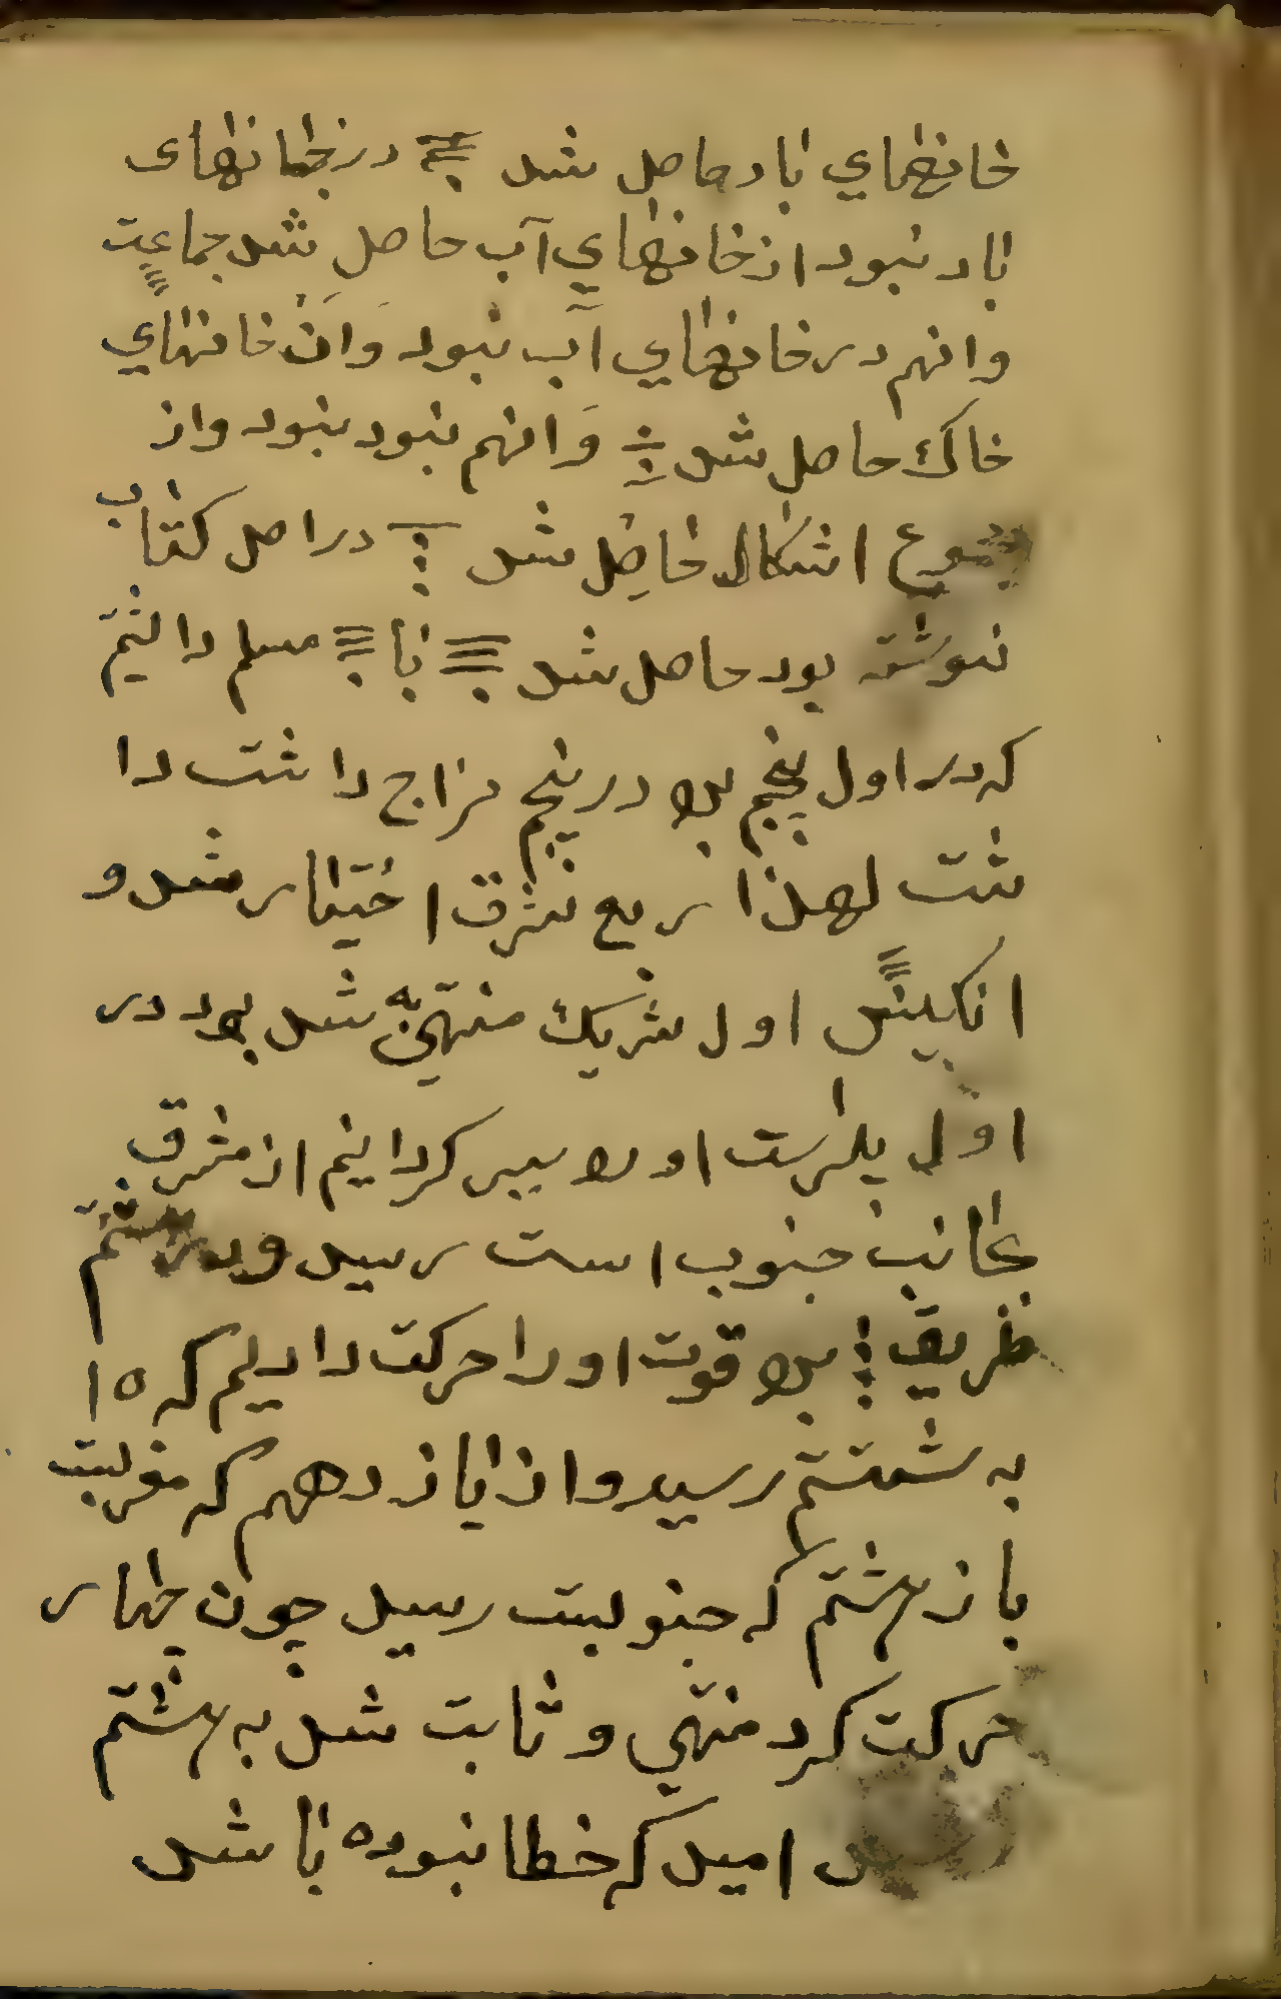 خانهای باد حاصل شد در خانهای
باد نبود از خانهای آب حاصل شد جماعت
وانهم در خانهای آب نبود وان خانهای
خاك حاصل شد وانهم نبود نبود واز
اشکال حاصل شد در اصل کتاب
نوشته بود حاصل شد با مسلم داشتیم
که در اول پنجم بلا در پنجم مزاج داشت دا
شت لهذا ربع شرق اختیار شد و
انکیس اول شریك منتهی به شد بود در
اول او را سیر کردانیم از مشرق
بجانب جنوب است رسید
طریق قوت او را حرکت دادیم که ۱۵
به هشتم رسید واز یازدهم که مغربیت
باز بهشتم که جنوبیت رسید چون چهار
حرکت کرد منتهی و ثابت شد به هشتم
امید که خطا نبوده باشد